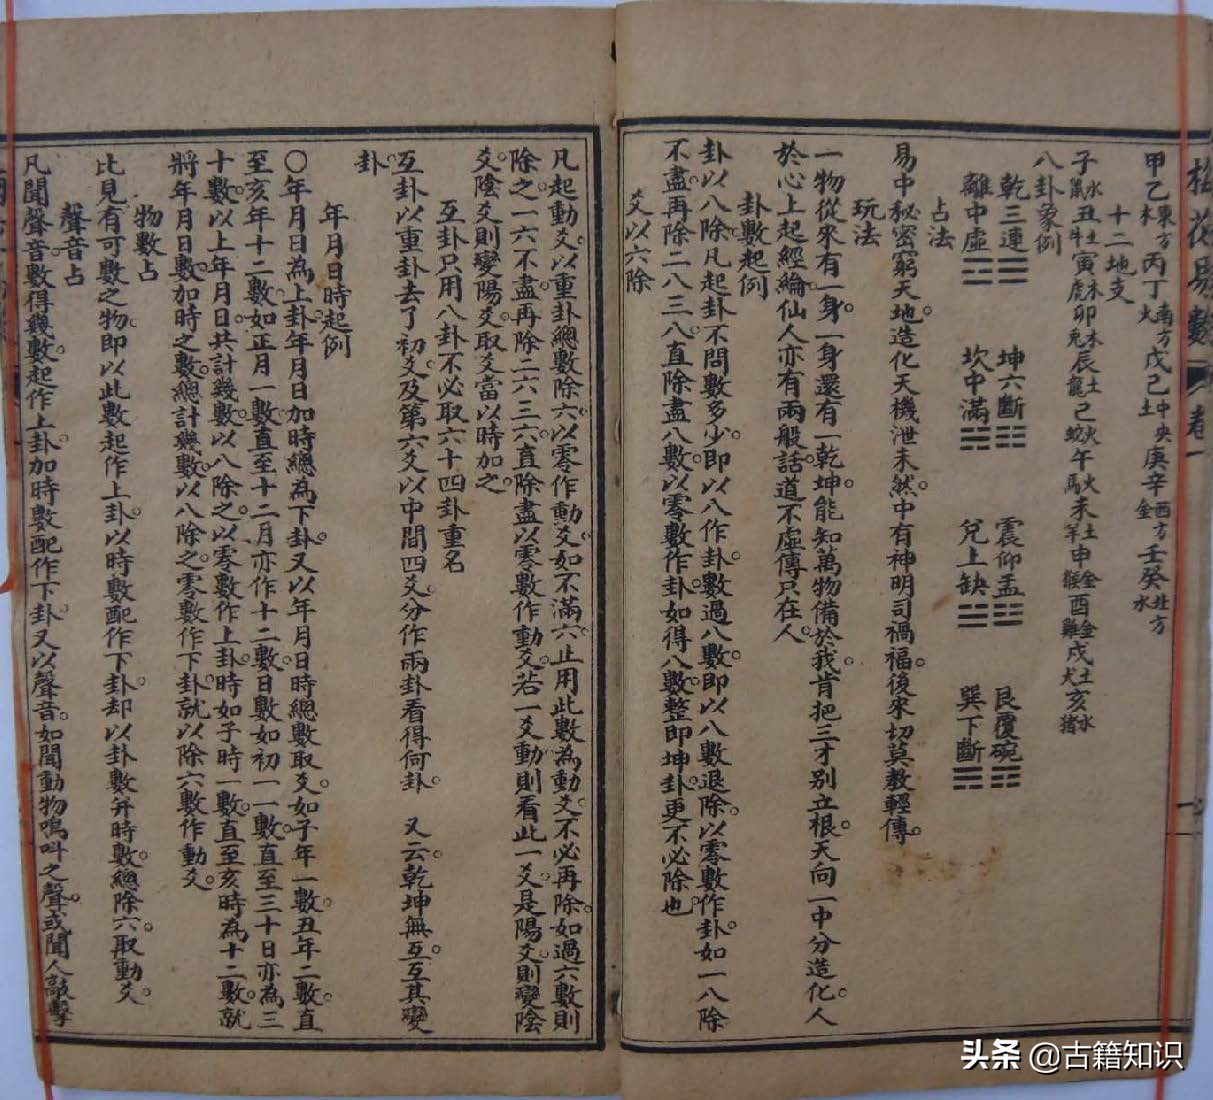 梅花易數 卷一
甲乙東方木丙丁南方火戊己中央土庚辛西方金壬癸北方水
十二地支
子水鼠丑土牛寅木虎卯木兔辰土龍巳火蛇午火馬未土羊申金猴酉金雞戌土犬亥水猪
八卦象例
乾三連☰ 坤六斷☷ 震仰盂☳ 艮覆碗☶
離中虛☲ 坎中滿☵ 兌上缺☱ 巽下斷☴
占法
易中秘密窮天地。造化天機泄未然。中有神明司禍福。後來切莫教輕傳。
玩法
一物從來有一身。一身還有一乾坤。能知萬物備於我。肯把三才別立根。天向一中分造化。人
於心上起經綸。仙人亦有兩般話。道不虛傳只在人。
卦數起例
卦以八除。凡起卦不問數多少。即以八作卦。數過八數。即以八數退除。以零數作卦。如一八除
不盡。再除二八三八。直除盡八數。以零數作卦。如得八數整。即坤卦。更不必除也。
爻以六除
凡起動爻。以重卦總數除六。以零作動爻。如不滿六。止用此數為動爻。不必再除。如過六數。則
除之。一六不盡。再除二六三六。直除盡。以零數作動爻。若一爻動。則看此一爻。是陽爻。則變陰
爻。陰爻則變陽爻。取爻當以時加之。
互卦只用八卦不必取六十四卦重名
互卦以重卦去了初爻及第六爻。以中間四爻。分作兩卦看得何卦。 又云乾坤無互。互其變
卦。
年月日時起例
〇年月日為上卦。年月日加時總為下卦。又以年月日時總數取爻。如子年一數。丑年二數。直
至亥年十二數。如正月一數。直至十二月。亦作十二數。日數如初一一數。直至三十日。亦為三
十數。以上年月日。共計幾數。以八除之。以零數作上卦。時如子時一數。直至亥時為十二數。就
將年月日數。加時之數。總計幾數。以八除之。零數作下卦。就以除六數作動爻。
物數占
比見有可數之物。即以此數起作上卦。以時數配作下卦。却以卦數并時數。總除六。取動爻。
聲音占
凡聞聲音。數得幾數。起作上卦。加時數。配作下卦。又以聲音。如聞動物鳴叫之聲。或聞人敲擊
头条 @古籍知识